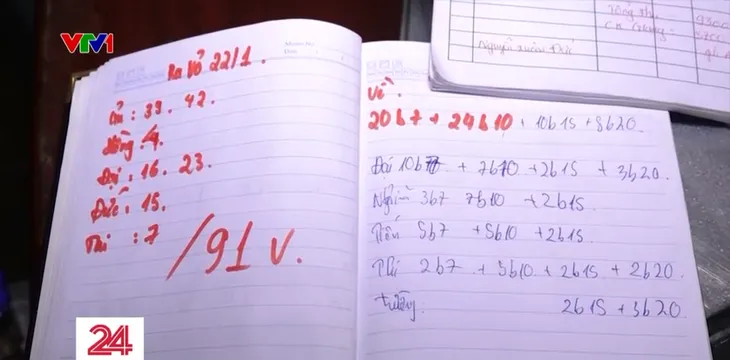 VTV1
Ra Vỏ 22/1.
39. 42.
Đồng: 4.
Đại: 16. 23.
Đức: 15.
Thi : 7
/91 V.
Về.
20b7 + 24b10 + 10b15 + 8b20.
Đại 10b7 + 7b10 + 2b15 + 3b20.
3b7 7b10 + 2b15.
5b7 + 5b10 + 2b15
2b7 + 5b10 + 2b15 + 2b20.
Trường 2b15 + 3b20.
Nguyễn Xuân Đức
9300
24